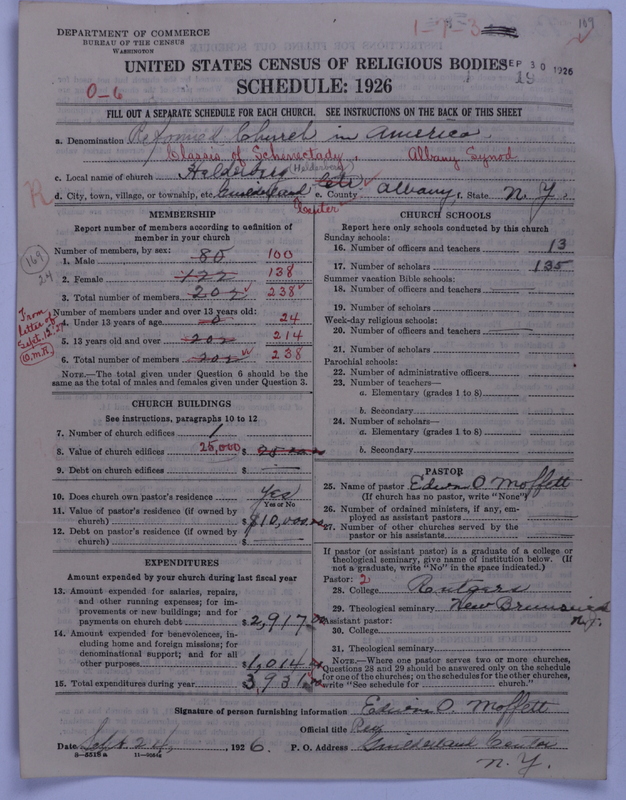 1-7-3
169
DEPARTMENT OF COMMERCE
BUREAU OF THE CENSUS
WASHINGTON
UNITED STATES CENSUS OF RELIGIOUS BODIES
SEP 30 1926
19
SCHEDULE: 1926
0-6
FILL OUT A SEPARATE SCHEDULE FOR EACH CHURCH. SEE INSTRUCTIONS ON THE BACK OF THIS SHEET
a. Denomination Reformed Church in America
Classis of Schenectady, Albany Synod
c. Local name of church Helderberg (Helderberg)
R
d. City, town, village, or township, etc. Guilderland Center e. County Albany f. State N. Y.
MEMBERSHIP
Report number of members according to definition of member in your church
169
24
Number of members, by sex:
1. Male 80 100
2. Female 122 138
3. Total number of members 202 238
From letter of Sept. 13, 27
O.M.R.
Number of members under and over 13 years old:
4. Under 13 years of age 0 24
5. 13 years old and over 202 214
6. Total number of members 202 238
NOTE.—The total given under Question 6 should be the same as the total of males and females given under Question 3.
CHURCH BUILDINGS
See instructions, paragraphs 10 to 12
7. Number of church edifices 1
8. Value of church edifices 25,000 $
9. Debt on church edifices $ —
10. Does church own pastor's residence Yes
Yes or No
11. Value of pastor's residence (if owned by church) $10,000.00
12. Debt on pastor's residence (if owned by church) $ —
EXPENDITURES
Amount expended by your church during last fiscal year
13. Amount expended for salaries, repairs, and other running expenses; for improvements or new buildings; and for payments on church debt $2,917
14. Amount expended for benevolences, including home and foreign missions; for denominational support; and for all other purposes $1,014
15. Total expenditures during year $3,931
CHURCH SCHOOLS
Report here only schools conducted by this church
Sunday schools:
16. Number of officers and teachers 13
17. Number of scholars 135
Summer vacation Bible schools:
18. Number of officers and teachers
19. Number of scholars
Week-day religious schools:
20. Number of officers and teachers
21. Number of scholars
Parochial schools:
22. Number of administrative officers
23. Number of teachers—
a. Elementary (grades 1 to 8)
b. Secondary
24. Number of scholars—
a. Elementary (grades 1 to 8)
b. Secondary
PASTOR
25. Name of pastor Edwin O. Moffett
(If church has no pastor, write "None")
26. Number of ordained ministers, if any, employed as assistant pastors
27. Number of other churches served by the pastor or his assistants
If pastor (or assistant pastor) is a graduate of a college or theological seminary, give name of institution below. (If not a graduate, write "No" in the space indicated.)
Pastor: 2
28. College Rutgers
29. Theological seminary New Brunswick N.J.
Assistant pastor:
30. College
31. Theological seminary
NOTE.—Where one pastor serves two or more churches, Questions 28 and 29 should be answered only on the schedule for one of the churches; on the schedules for the other churches, write "See schedule for church."
Signature of person furnishing information Edwin O. Moffett
Official title
Date Sept. 24, 1926. P. O. Address Guilderland Center
N. Y.
8-5518a 11-9064a